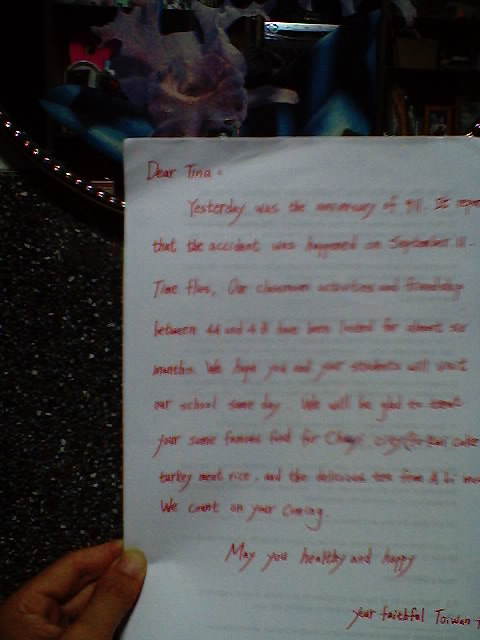 Dear Tina,
Yesterday was the anniversary of 911. It
that the accident was happened on September 11.
Time flies, Our classroom activities and friendship
between 4A and 4B have been lasted for almost six
months. We hope you and your students will visit
our school some day. We will be glad to treat
your some famous food for Chiayi cake
turkey meat rice, and the delicious tea from A li
We count on your coming.
May you healthy and happy
your faithful Taiwan